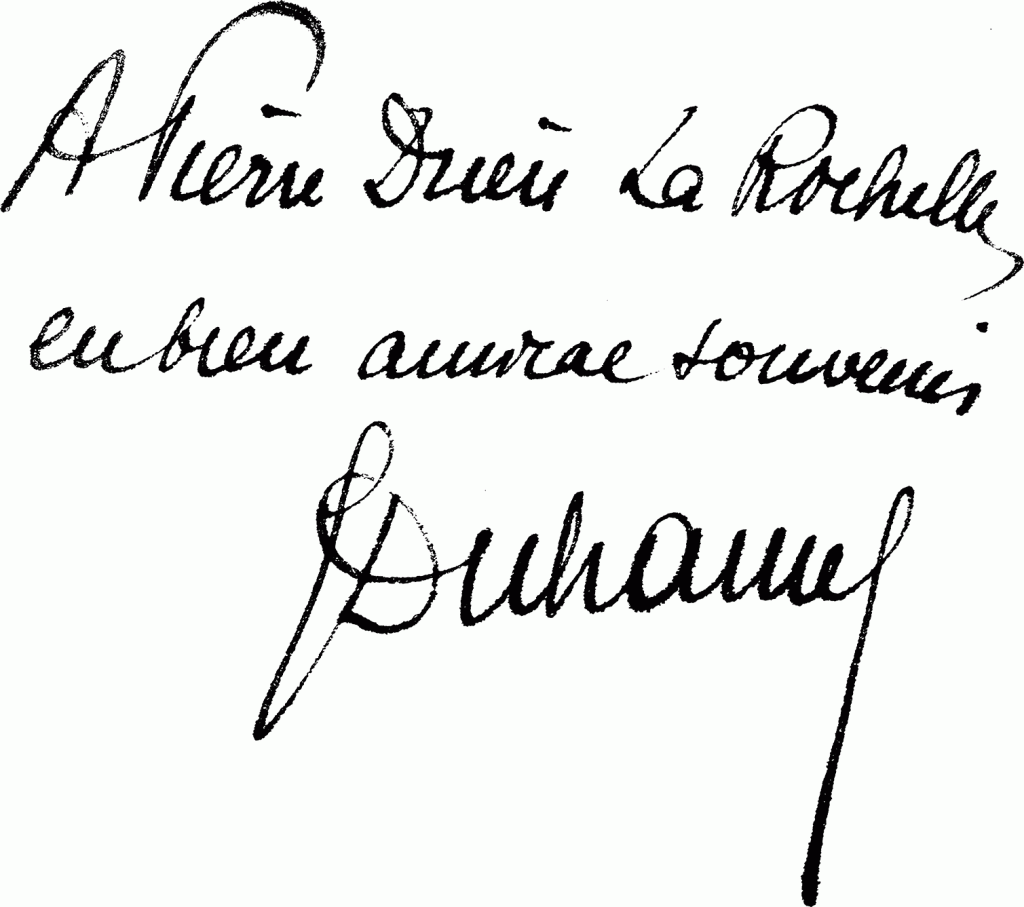 A Pierre Drieu La Rochelle,
en bien amical souvenir
GDuhamel